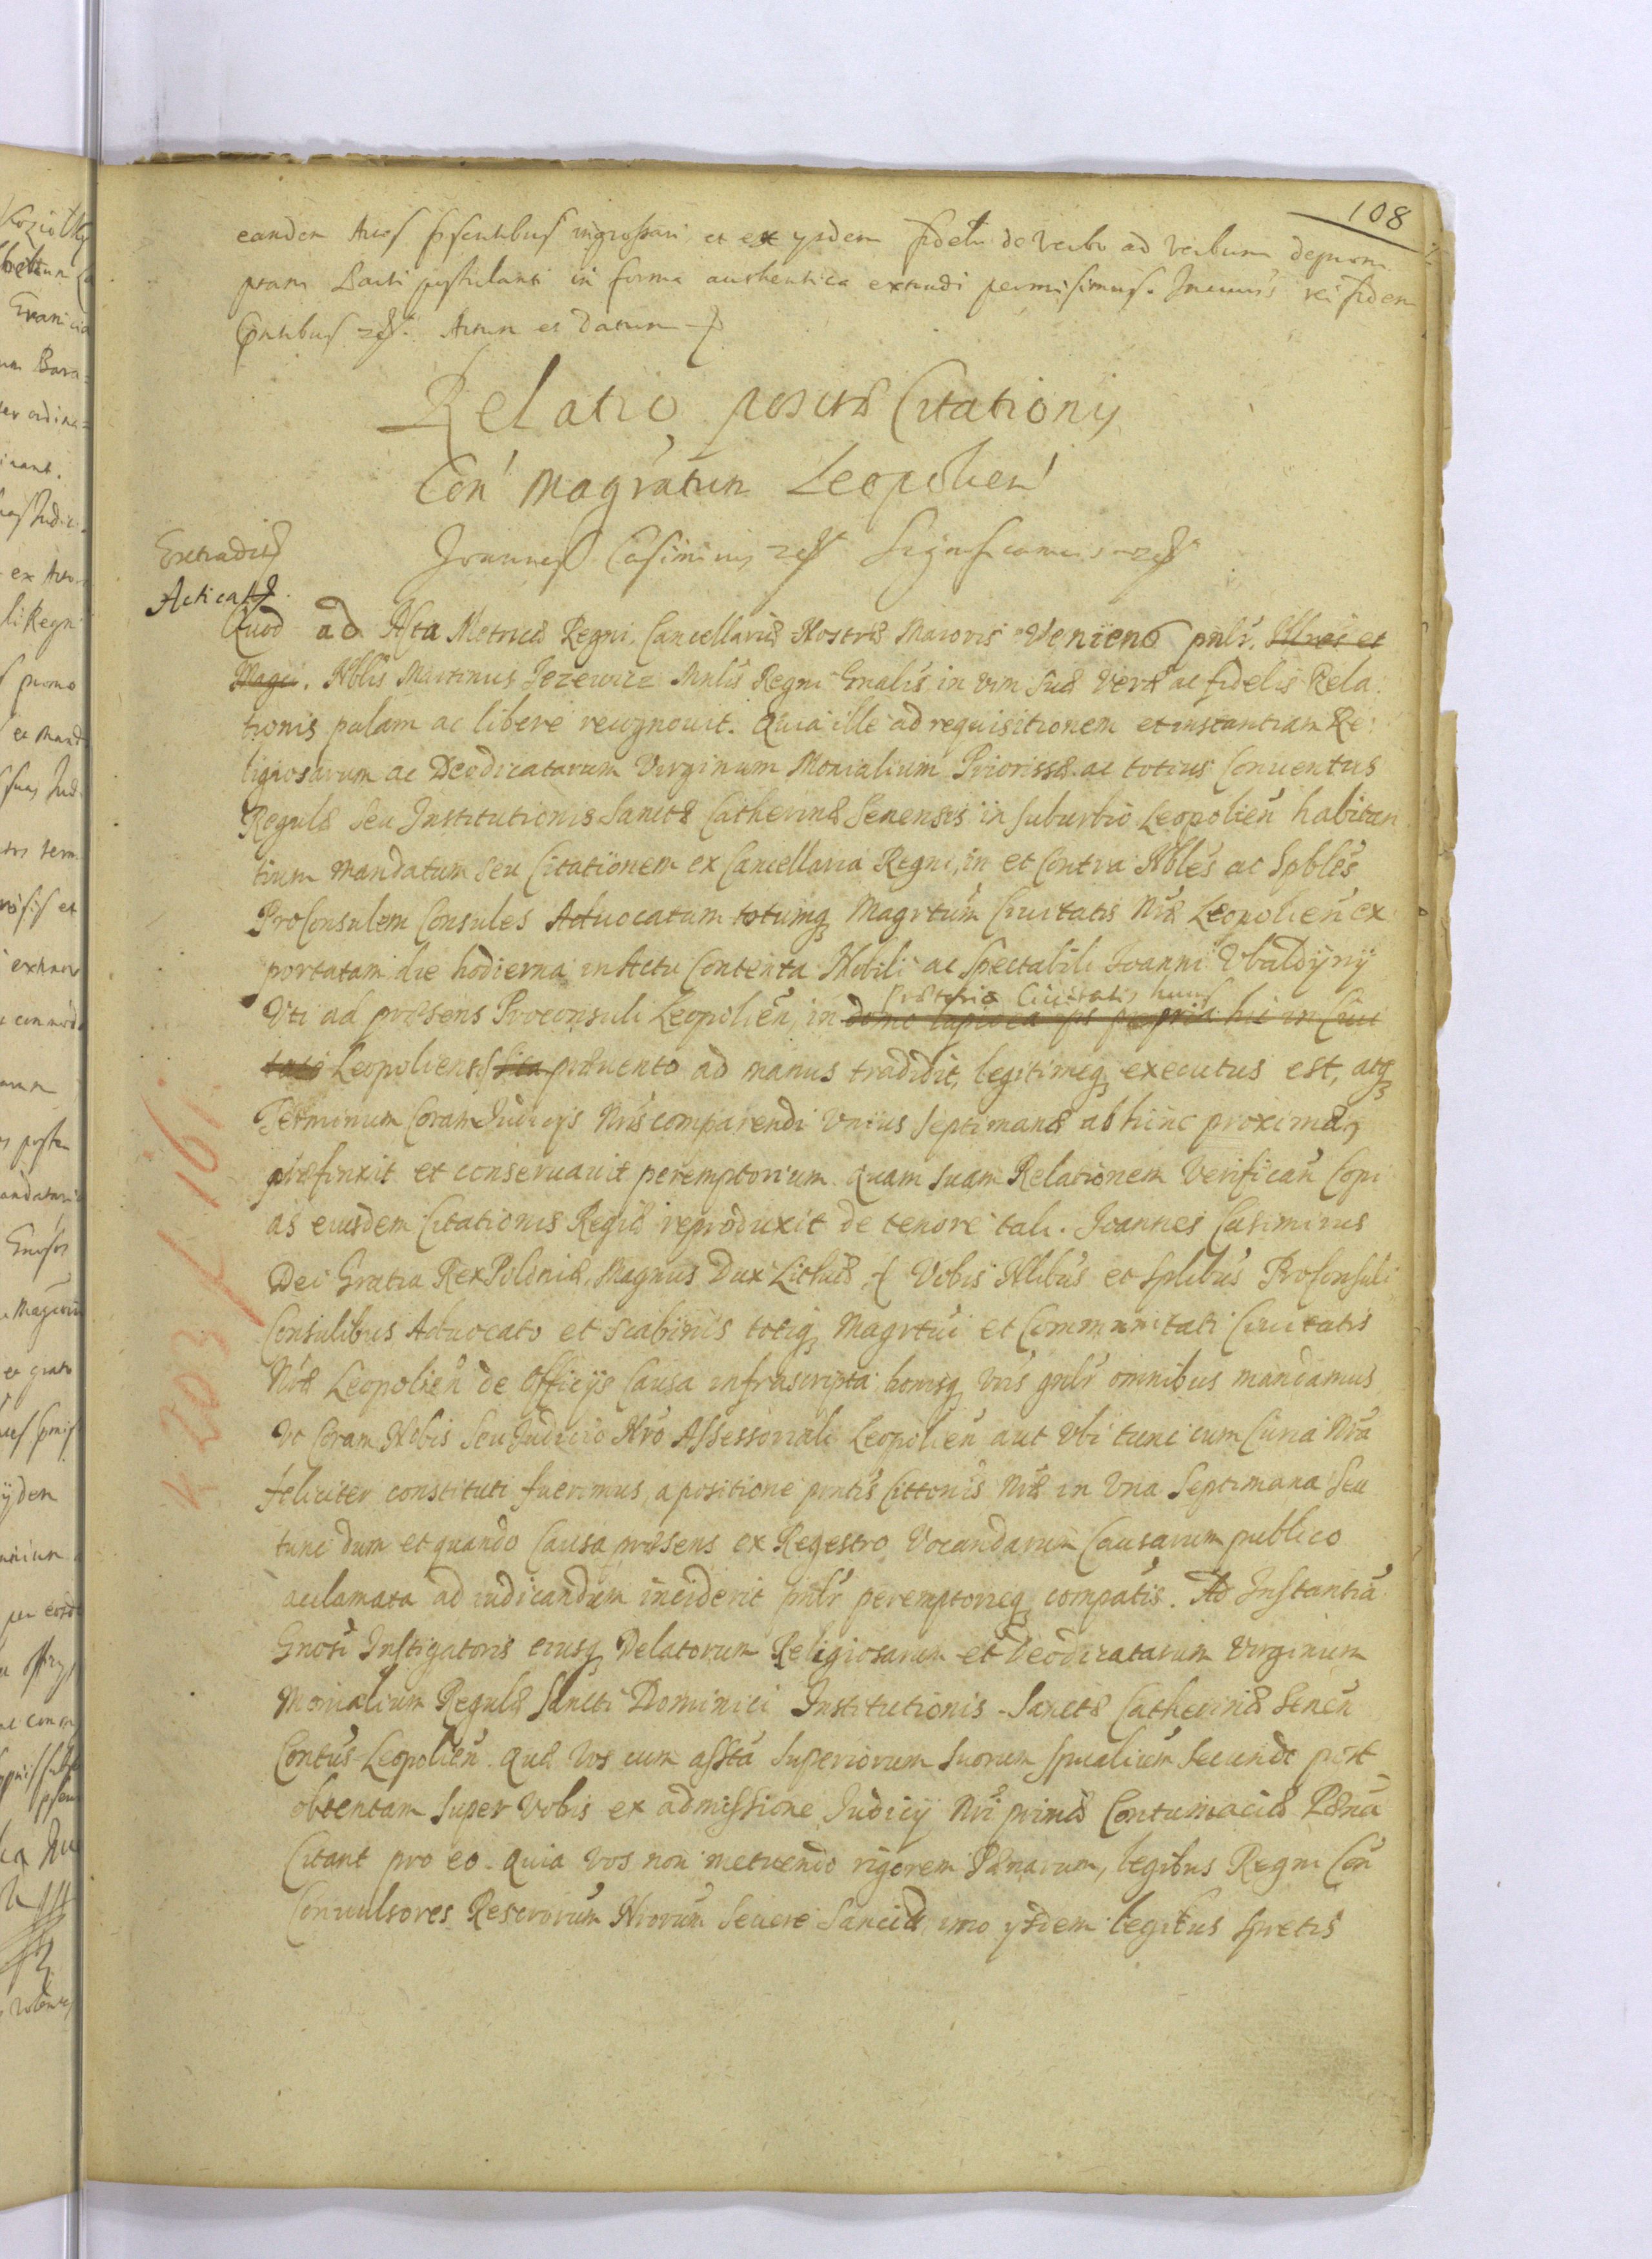 108
eandem Actis p̄sentibus ingrossari et ex ijsdem fideli de verbo ad verbum deprom
ptam Parti postulanti in forma authentica extradi permisimus. In cuius rei fidem
p̄ntibus Actum et datum
Relatio positæ Citationis
Con' Magr̄atum Leopolien'
Extradita Joannes Casimirus Significamus
Acticata
Quod ad Acta Metricæ Regni Cancellariæ Nostræ Maioris Veniens pnlr. Illres et
Magci. Nblis Martinus Jezewicz Mnlis Regni Gnalis in vim suæ veræ ac fidelis Rela
tionis palam ac libere recognouit. Quia ille ad requisitionem et instantiam Re
ligiosarum ac Deodicatarum Virginum Monialium Priorissæ ac totius Conuentus
Regulæ seu Institutionis Sanctæ Catherinæ Senensis in suburbio Leopolien habitan
tium Mandatum seu Citationem ex Cancellaria Regni, in et Contra Nbles ac Spbles
ProConsulem Consules Aduocatum totumq Magrtum Ciuitatis Nræ Leopolien ex
portatam die hodierna in Actu Contenta Nobili ac Spectabili Joanni Vbaldijnij
Prætorio Ciuitatis huius
Vti ad præsens Proconsuli Leopolien, in domo lapidea ips propria hic in Ciui
tate Leopoliensi sita præuento ad manus tradidit, legitimeq executus est, atq
Terminum Coram Judicijs Nris comparendi vnius septimanæ ab hinc proximæ
præfixit et conseruauit peremptorium. Quam suam Relationem verifican Copi
as eiusdem Citationis Regiæ reproduxit de tenore tali. Joannes Casimirus
Dei Gratia Rex Poloniæ, Magnus Dux Lithæ Vobis Nlibus et Splibus Proconsuli
Consulibus Aduocato et Scabinis totiq Magrtui et Communitati Ciuitatis
Nræ Leopolien de Officijs Causa infrascripta bonisq vris gnlr omnibus mandamus
Vt Coram Nobis seu Judicio Nro Assessoriali Leopolien aut vbi tunc cum Curia Nra
feliciter constituti fuerimus, a positione pntis Cittonis Nræ in vna Septimana seu
tunc dum et quando Causa præsens ex Regestro Vocandarum Causarum publico
acclamata ad iudicandum inciderit pnlr peremptorieq compatis. Ad Instantia
Gnosi Instigatoris eiusq Delatorum Religiosarum et Deodicatarum Virginum
Monialium Regulæ Sancti Dominici Institutionis Sanctæ Catherinæ Senen
Contus Leopolien. Quæ vos cum assta superiorum suorum spualium secundo post
obtentam super vobis ex admissione Judicij Nri primæ Contumaciæ Pæna
Citant pro eo. Quia vos non metuendo rigorem Pænarum, legibus Regni Con
Conuulsores Rescrorum Nrorum seuere sancita imo ijsdem legibus spretis